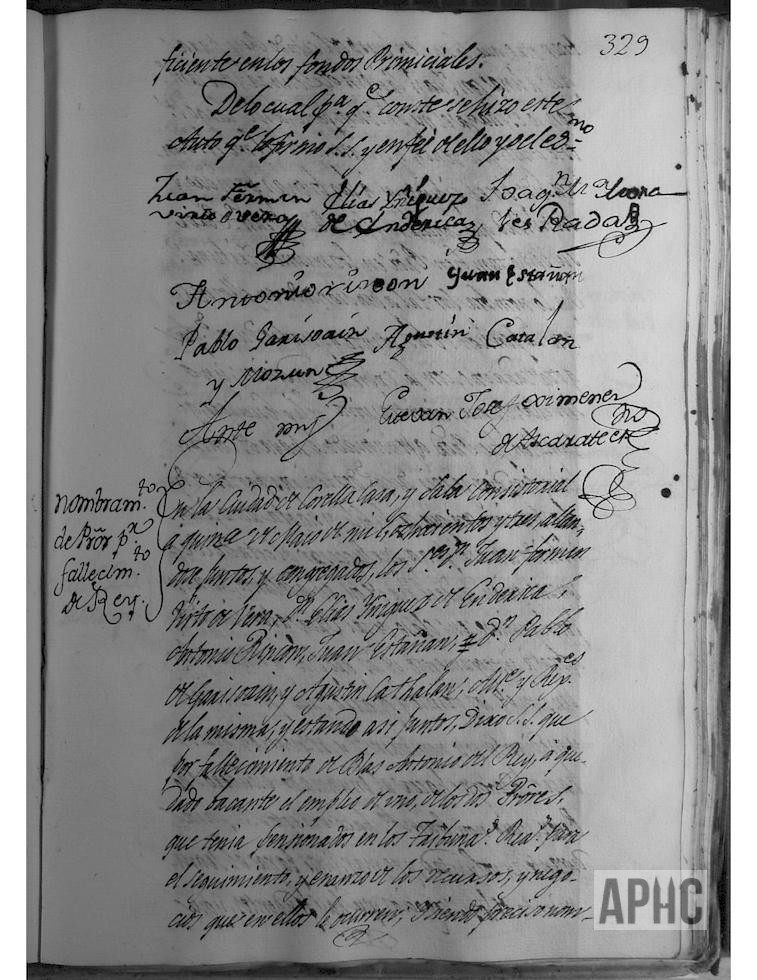 329
ficiente en los fondos Primiciales.
De lo cual pa. qe. conste se hizo este
Auto qe. lo firmó S.S. y en feé de ello yo el es-no
Juan Fermin Elias Yñiguez Joaqn. Ma.
Virto de Vera de Enderica, Ses Rada
Antonio rincon Juan Estañan
Pablo Garisoain Agustin Catalan
y Mozun
Ante my Estevan Josef Ximenez
de Ascarate esno
nombram.to
de Prõr pa.
fallecim.to
de Rey.
En la Ciudad de Corella Casa, y Sala Consistorial
a quince de Maio de mil, ochocientos y tres, allan-
dose juntos, y congregados, los Sres. Dn. Juan fermin
Virto de Vera, Dn. Elias Yñiguez de Enderica,
Antonio Rincon, Juan Estañan, y Dn. Pablo
de Garisoain, y Agustin Cathalan, Alces. y Rexes.
de la misma, y estando asi juntos, Dixo S.S. que
por fallecimiento de Blas Antonio del Rey, à que-
dado bacante el empleo de uno, de los dos Prõres,
que tenia pensionados en los Tribunas. Reas. para
el seguimiento, y de los recursos, y nego-
cios que en ellos le ocurren, siendo preciso nom-
APHC